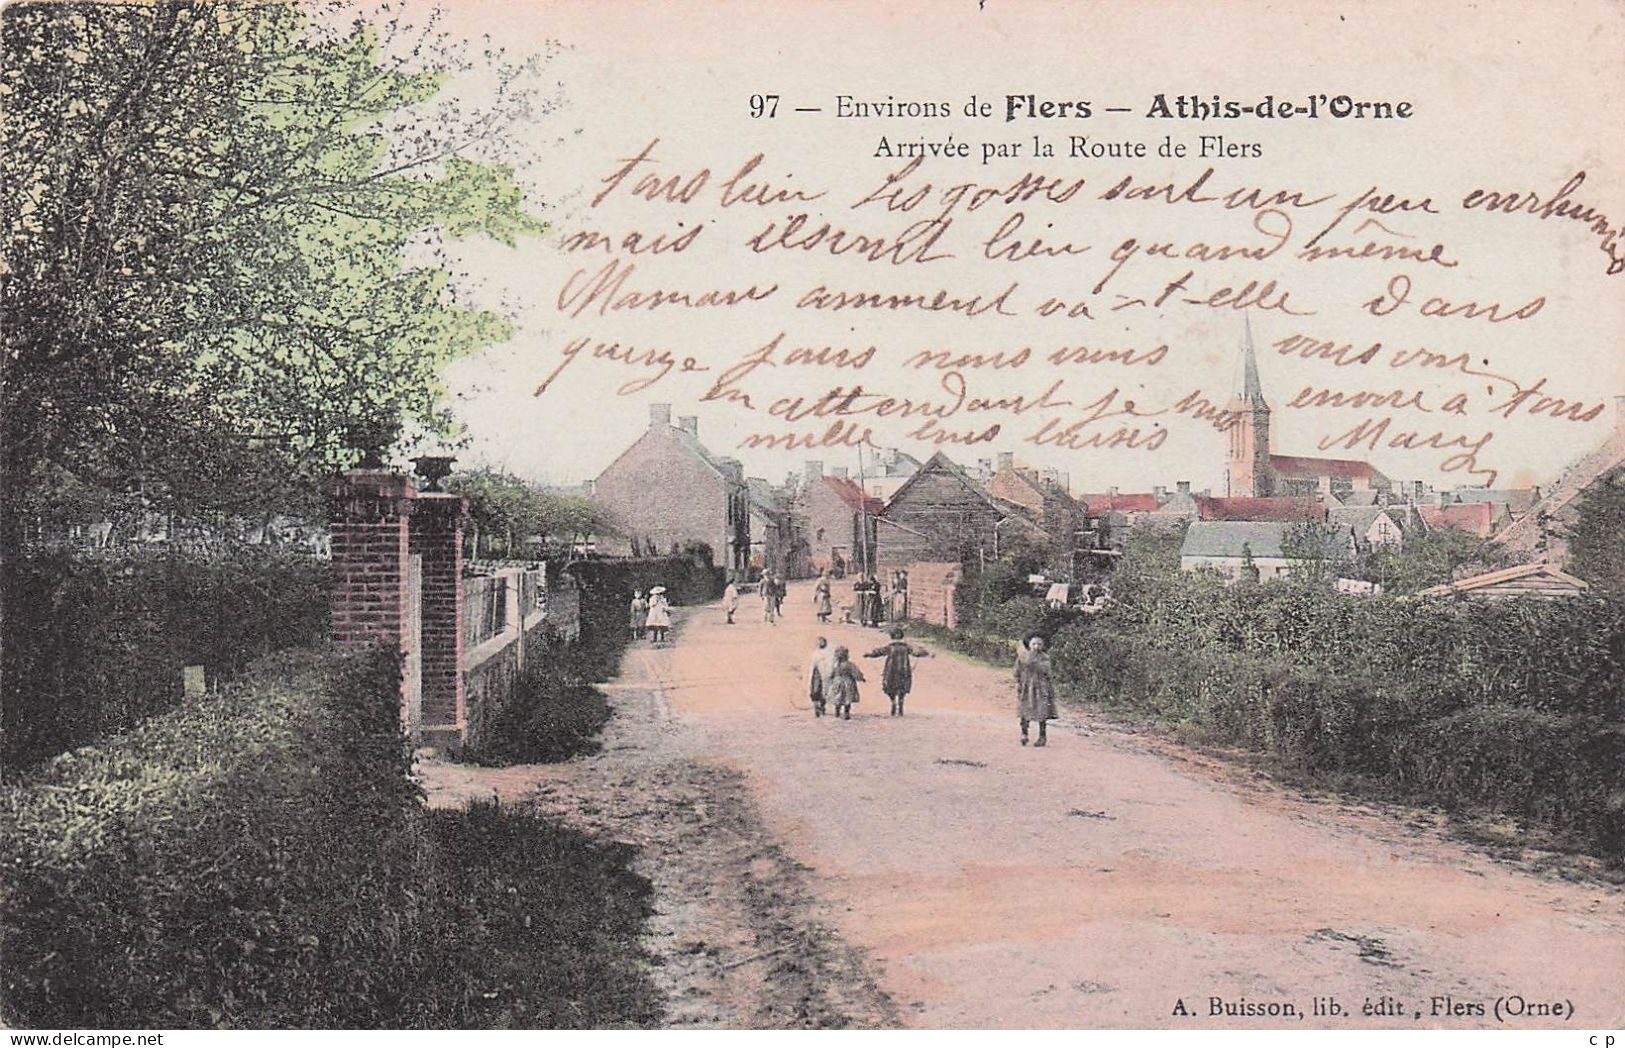 97 — Environs de Flers — Athis-de-l'Orne
Arrivée par la Route de Flers
tous bien Les gosses sont un peu enrhumés
mais ils iront bien quand même
Maman comment va-t-elle Dans
quinze jours nous irons vous voir.
en attendant je envoie à tous
mille bons baisers Marg
A. Buisson, lib. édit, Flers (Orne)
c p